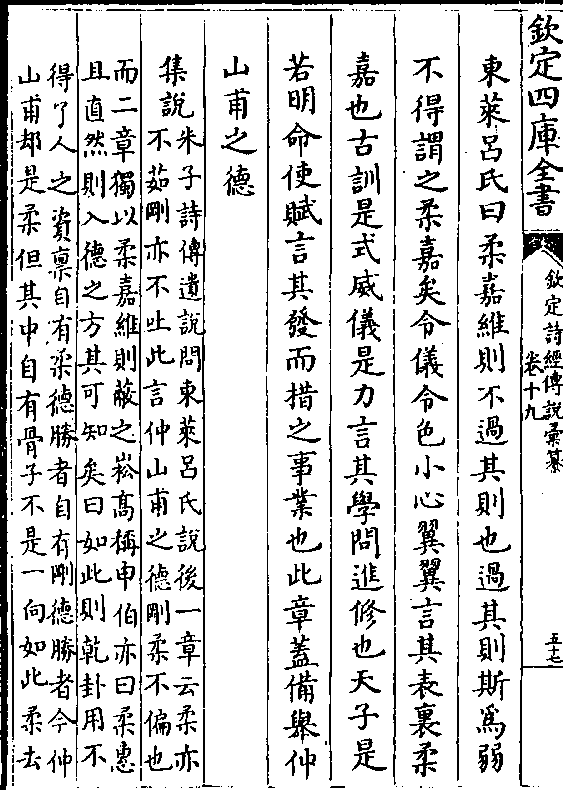 欽定四庫全書
欽定詩經傳說彙纂
卷十九
五十七
東萊呂氏曰柔嘉維則不過其則也過其則斯為弱
不得謂之柔嘉矣令儀令色小心翼翼言其表裏柔
嘉也古訓是式威儀是力言其學問進修也天子是
若明命使賦言其發而措之事業也此章蓋備舉仲
山甫之德
集說朱子詩傳遺說問東萊呂氏說後一章云柔亦
不茹剛亦不吐此言仲山甫之德剛柔不偏也
而二章獨以柔嘉維則蔽之崧高稱申伯亦曰柔惠
且直然則入德之方其可知矣曰如此則乾卦用不
得了人之資稟自有柔德勝者自有剛德勝者今仲
山甫却是柔但其中自有骨子不是一向如此柔去